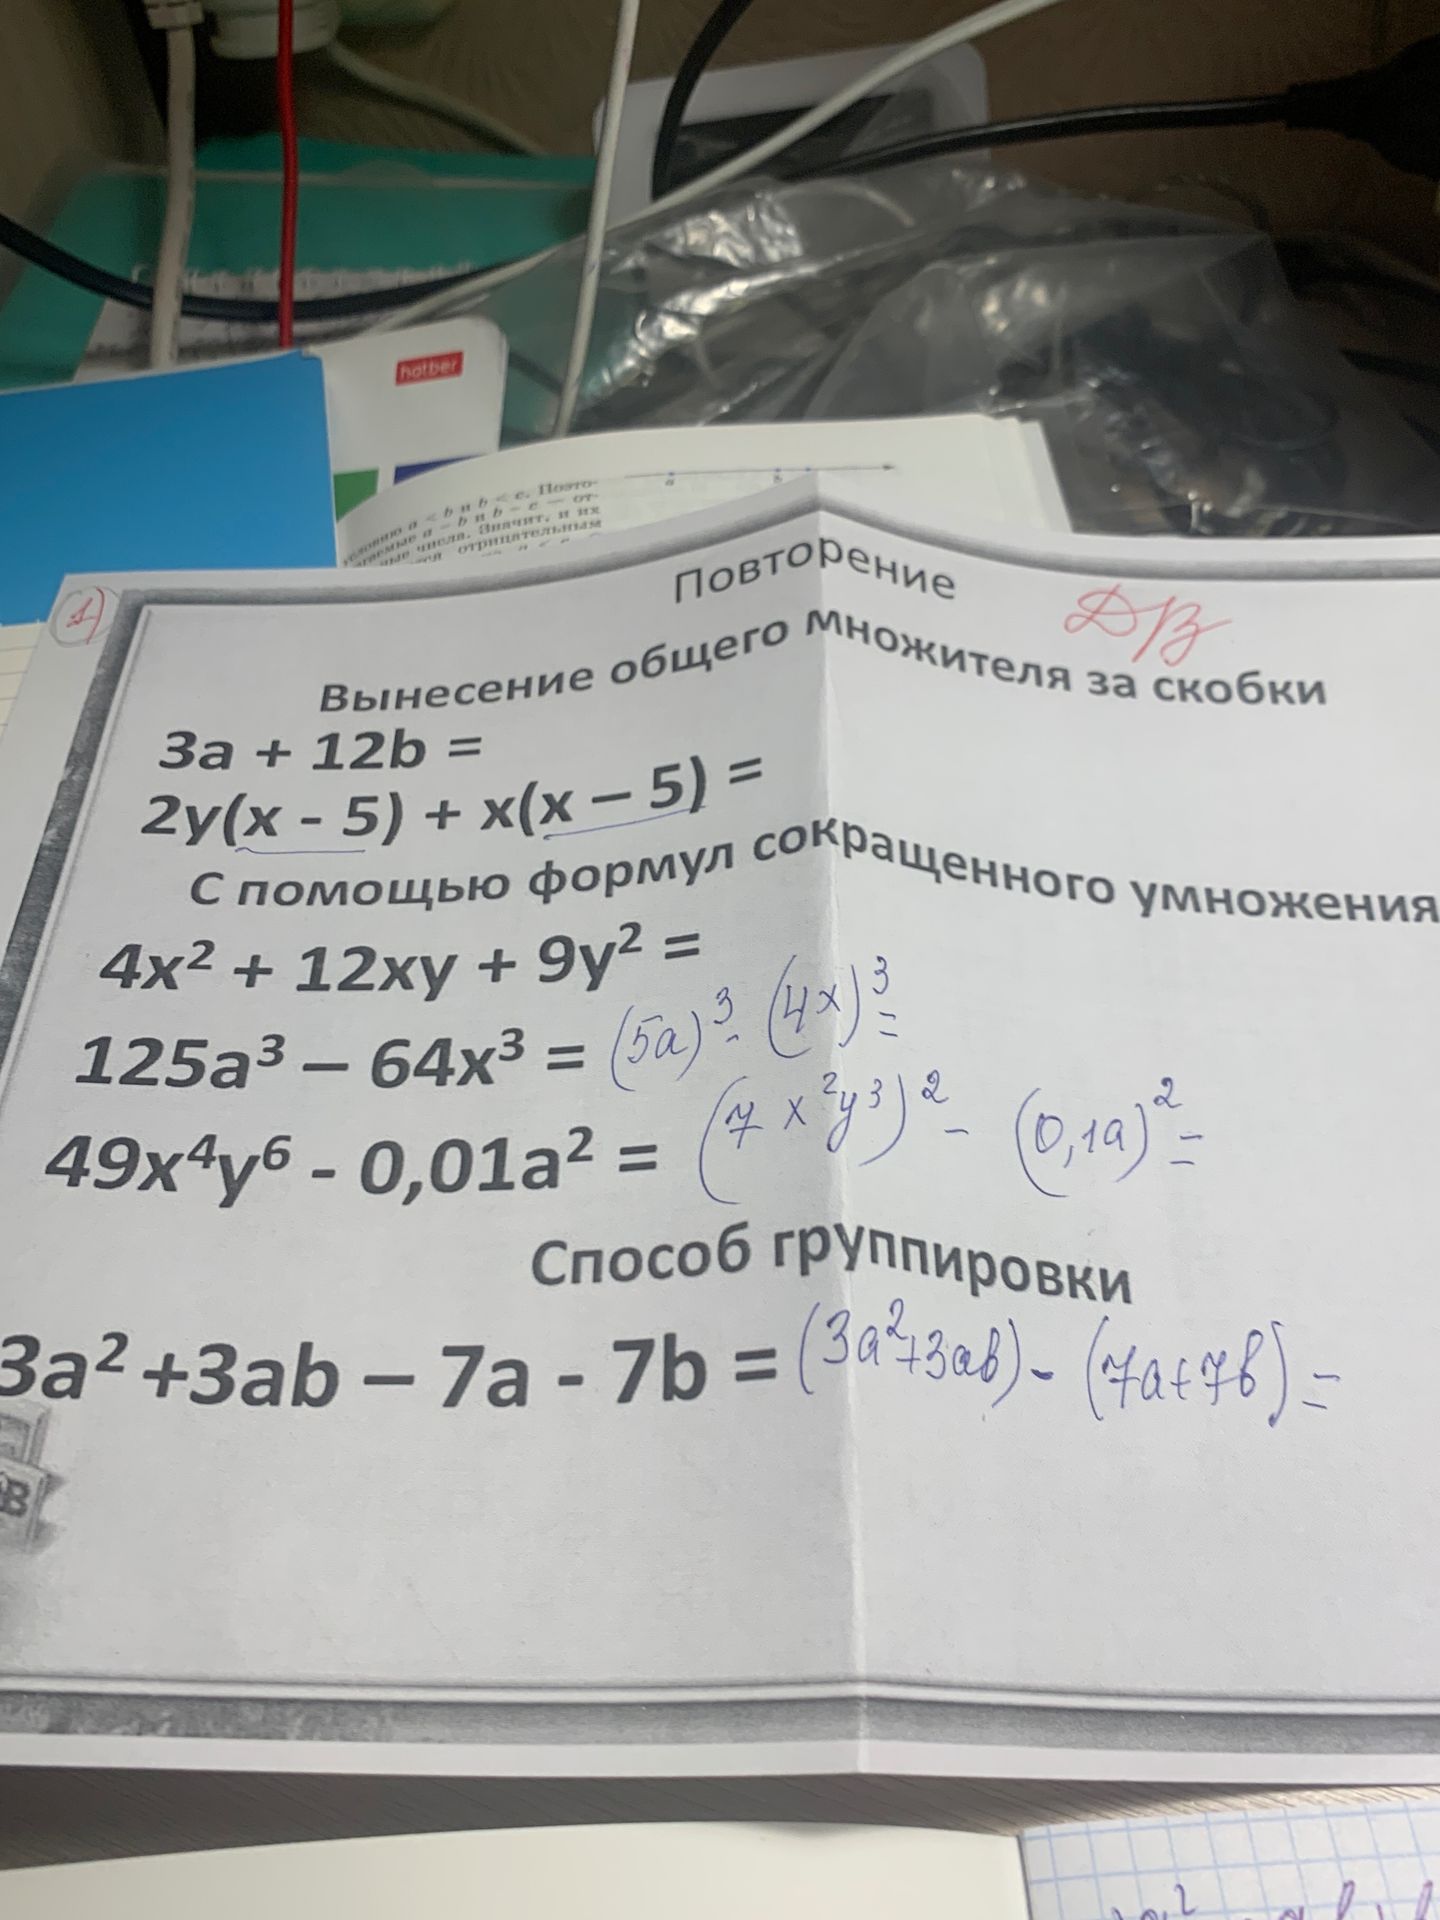 hatber
условию a < b и b < c. Поэто-
a − b и b − c — от-
числа. Значит, и их
отрицательным
a
b
Повторение
1)
ДЗ
Вынесение общего множителя за скобки
3a + 12b =
2y(x - 5) + x(x – 5) =
С помощью формул сокращенного умножения
4x² + 12xy + 9y² =
125a³ – 64x³ = (5a)³ - (4x)³ =
49x⁴y⁶ - 0,01a² = (7x²y³)² - (0,1a)² =
Способ группировки
3a² +3ab – 7a - 7b = (3a²+3ab) - (7a+7b) =
В